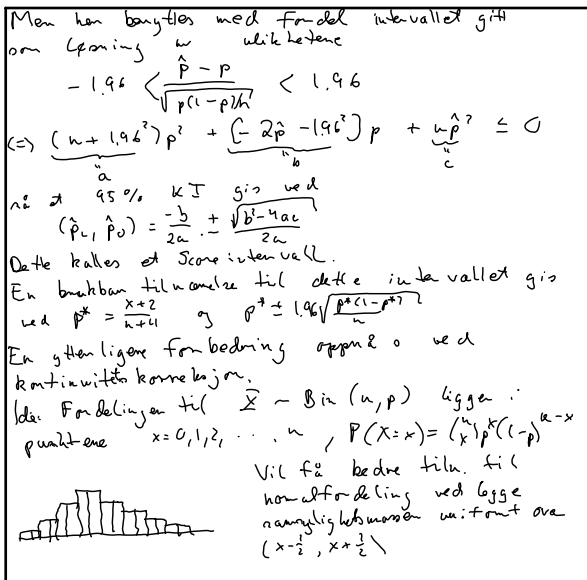 Men han benyttes med fordel intervallet gitt
som løsning av ulikhetene
- 1.96 < \frac{\hat{p} - p}{\sqrt{p(1-p)/n}} < 1.96
<=> (n + 1.96²) p² + (- 2\hat{p} - 1.96²) p + n\hat{p}² ≤ 0
a b c
95 % KI gis ved
(\hat{p}_L, \hat{p}_U) = \frac{-b}{2a} ± \frac{\sqrt{b² - 4ac}}{2a}
Dette kalles et Scoreintervall.
En brukbar tilnærmelse til dette intervallet gis
ved p* = \frac{x+2}{n+4} og p* ± 1.96 \sqrt{\frac{p*(1-p*)}{n}}
En ytterligere forbedring oppnås ved
kontinuitetskorreksjon.
Ide: Fordelingen til X ~ Bin (n, p) ligger i
punktene x = 0, 1, 2, . . . , n , P(X = x) = \binom{n}{x} p^x (1-p)^{n-x}
Vil få bedre tiln. til
normalfordeling ved legge
sannsynlighetsmassen uniformt over
(x - \frac{1}{2}, x + \frac{1}{2})